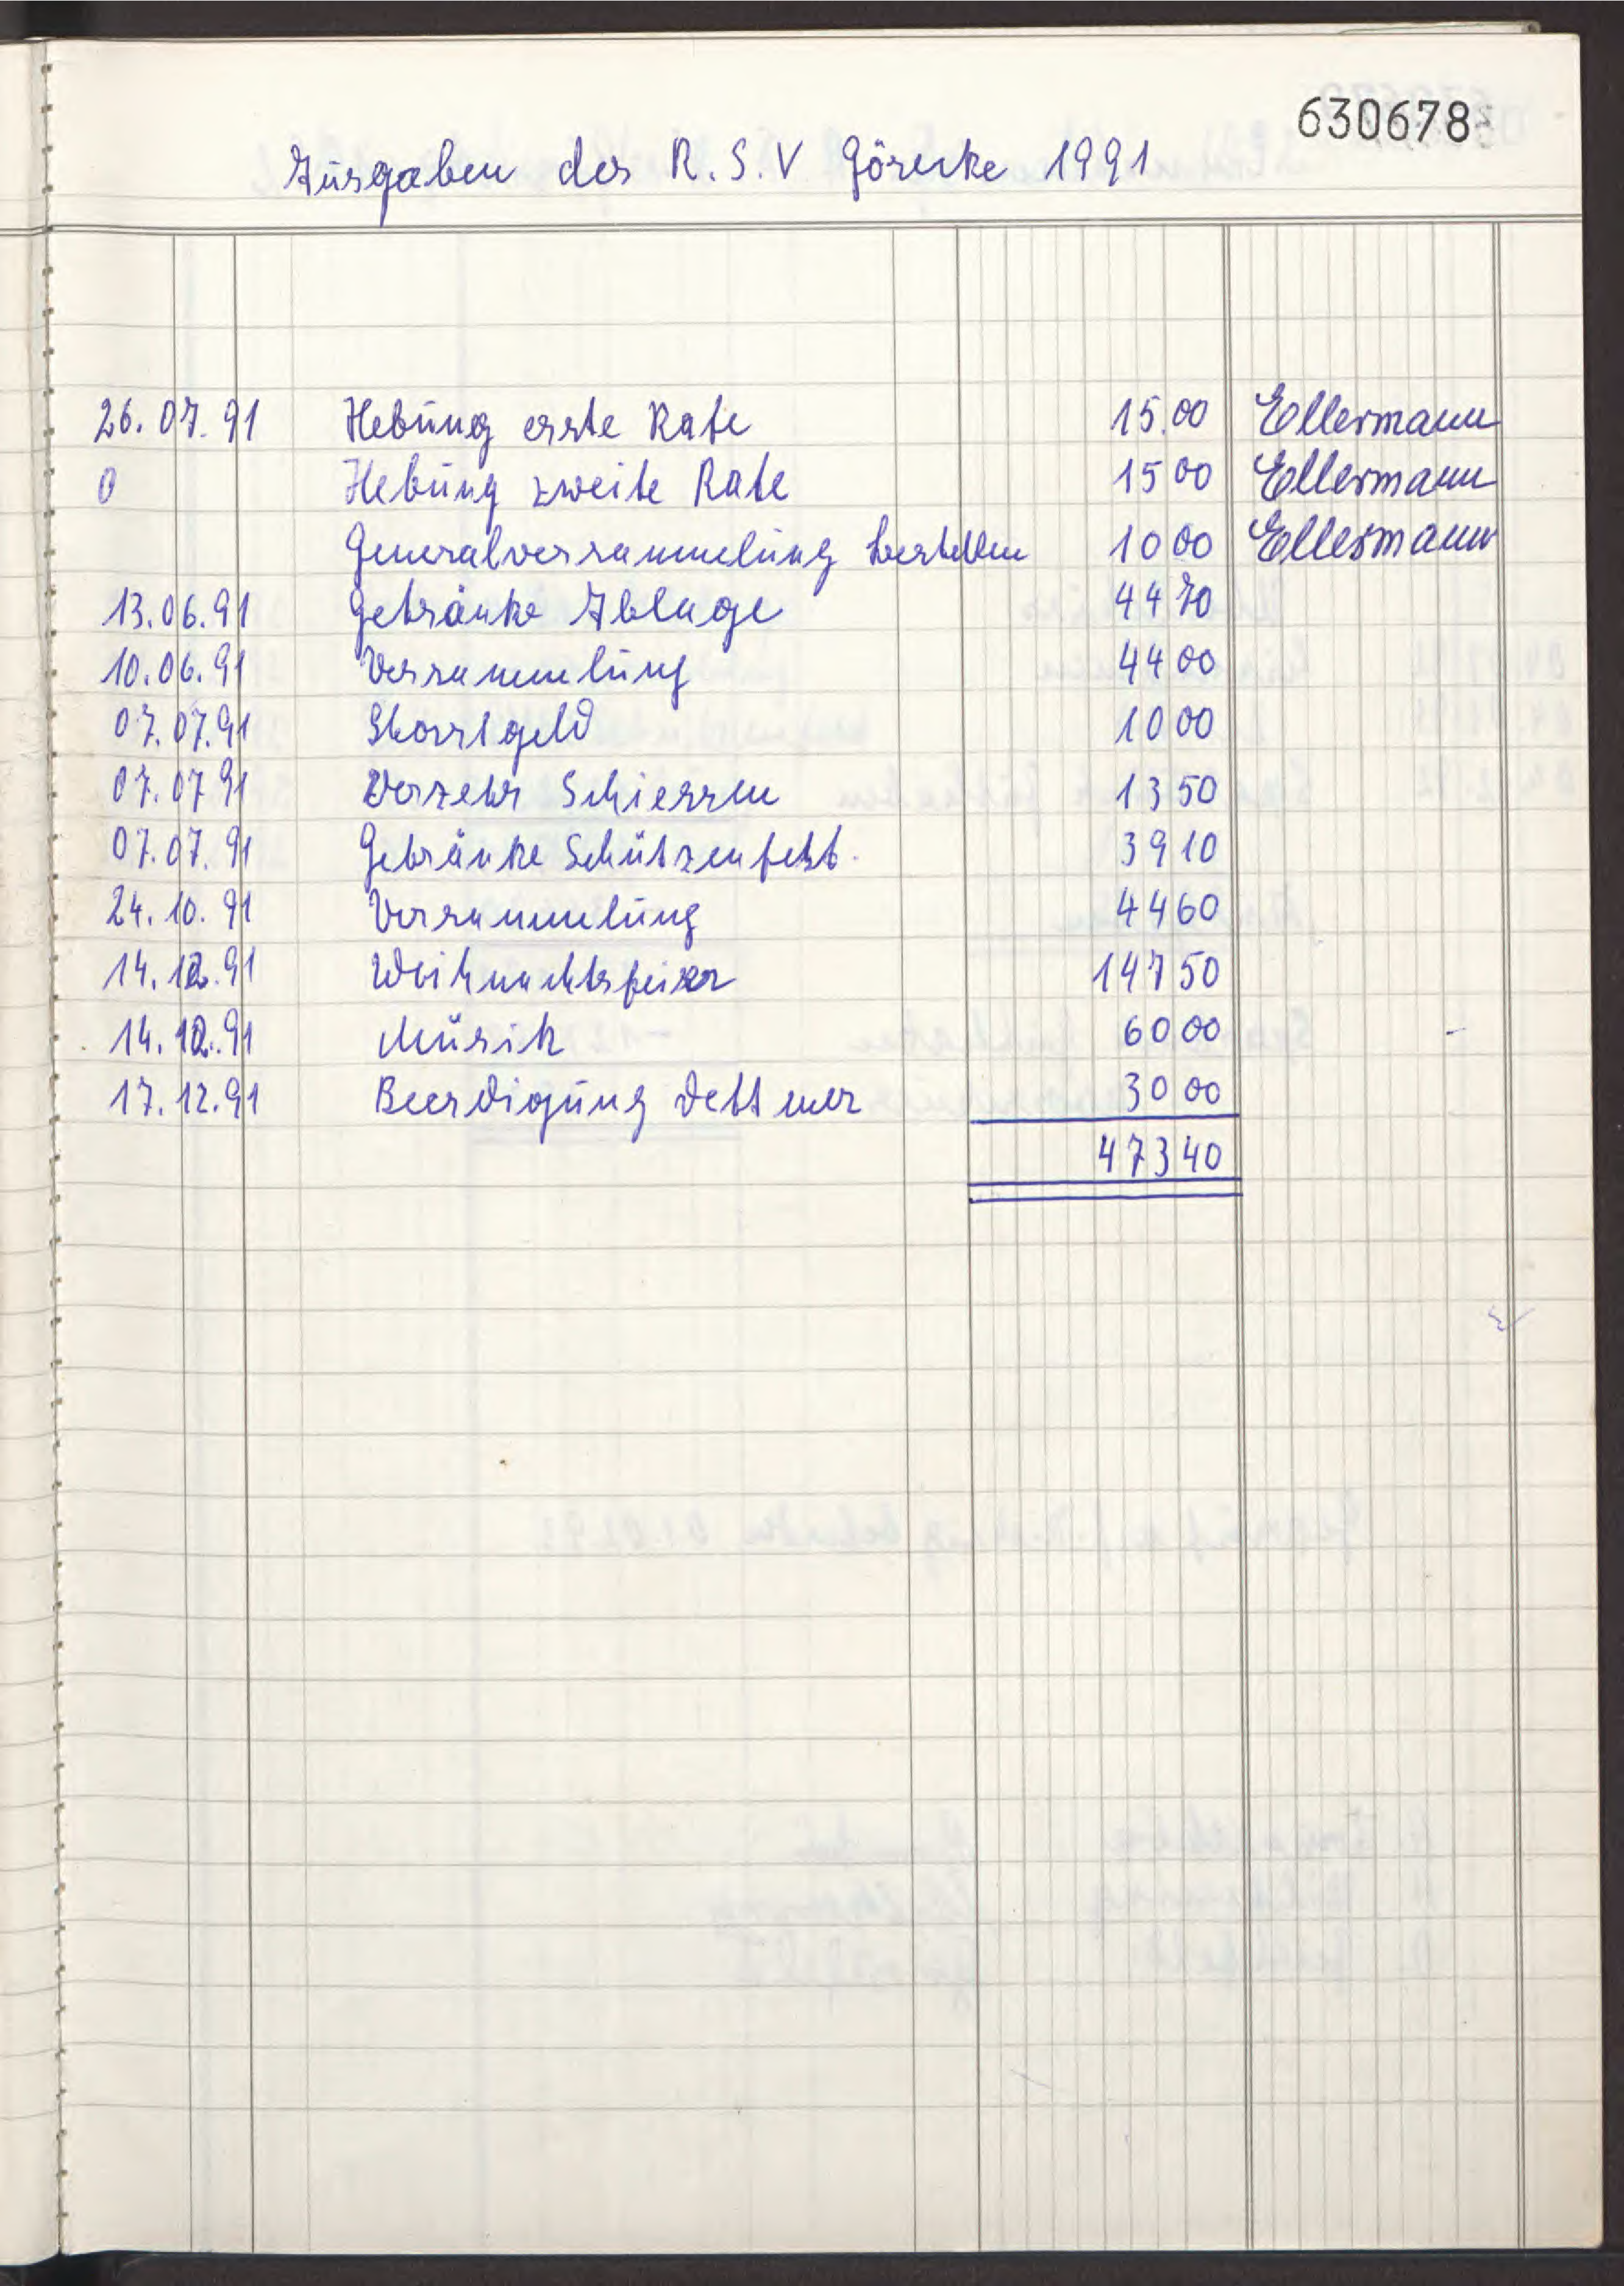 630678
Ausgaben des R.S.V Görseke 1991
26.07.91 Hebung erste Rate 15.00 Ellermann
0 Hebung zweite Rate 15 00 Ellermann
Generalversammlung bestellen 10 00 Ellermann
13.06.91 Getränke Ablage 44 70
10.06.91 Versammlung 44 00
07.07.91 Startgeld 10 00
07.07 91 Verzehr Schiessen 13 50
07.07.91 Getränke Schützenfest.
39 10
24.10.91 Versammlung 44 60
14.12.91 Weihnachtsfeier 147 50
14.12.91 Musik 60 00
17.12.91 Beerdigung Dettmer 30 00
473 40